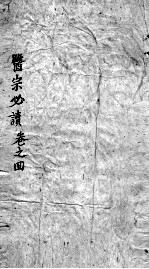 醫宗必讀卷之四